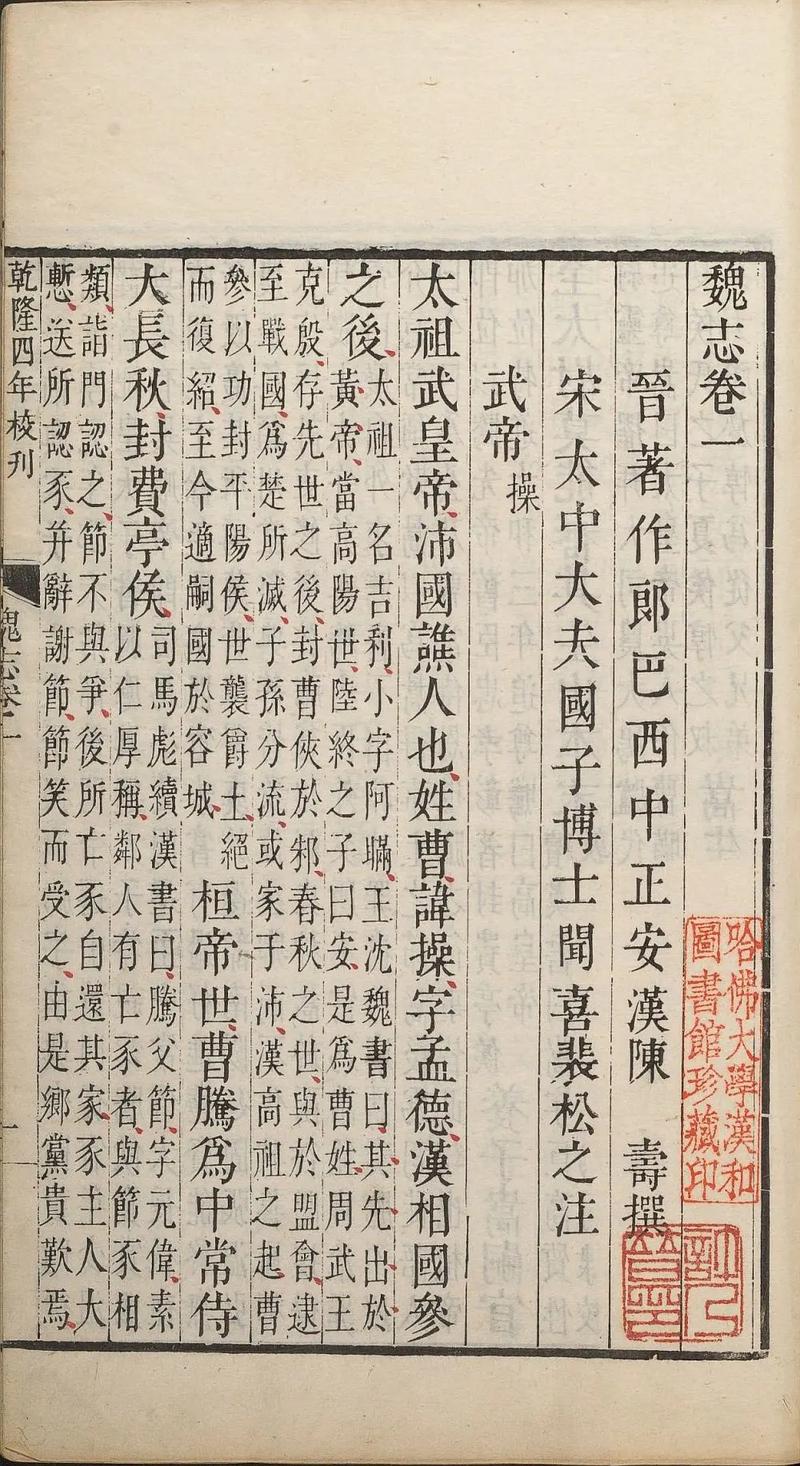 魏志卷一
晉著作郎巴西中正安漢陳　壽撰
宋太中大夫國子博士聞喜裴松之注
武帝操
太祖武皇帝沛國譙人也姓曹諱操字孟德漢相國參
之後
太祖一名吉利小字阿瞞王沈魏書曰其先出於
黃帝當高陽世陸終之子曰安是爲曹姓周武王
克殷存先世之後封曹俠於邾春秋之世與於盟會逮
至戰國爲楚所滅子孫分流或家于沛漢高祖之起曹
參以功封平陽侯世襲爵土絕
而復紹至今適嗣國於容城
桓帝世曹騰爲中常侍
大長秋封費亭侯
司馬彪續漢書曰騰父節字元偉素
以仁厚稱鄰人有亡豕者與節豕相
類詣門認之節不與爭後所亡豕自還其家豕主人大
慙送所認豕并辭謝節節笑而受之由是鄉黨貴歎焉
乾隆四年校刊
魏志卷一
一
哈佛大學漢和
圖書館珍藏印